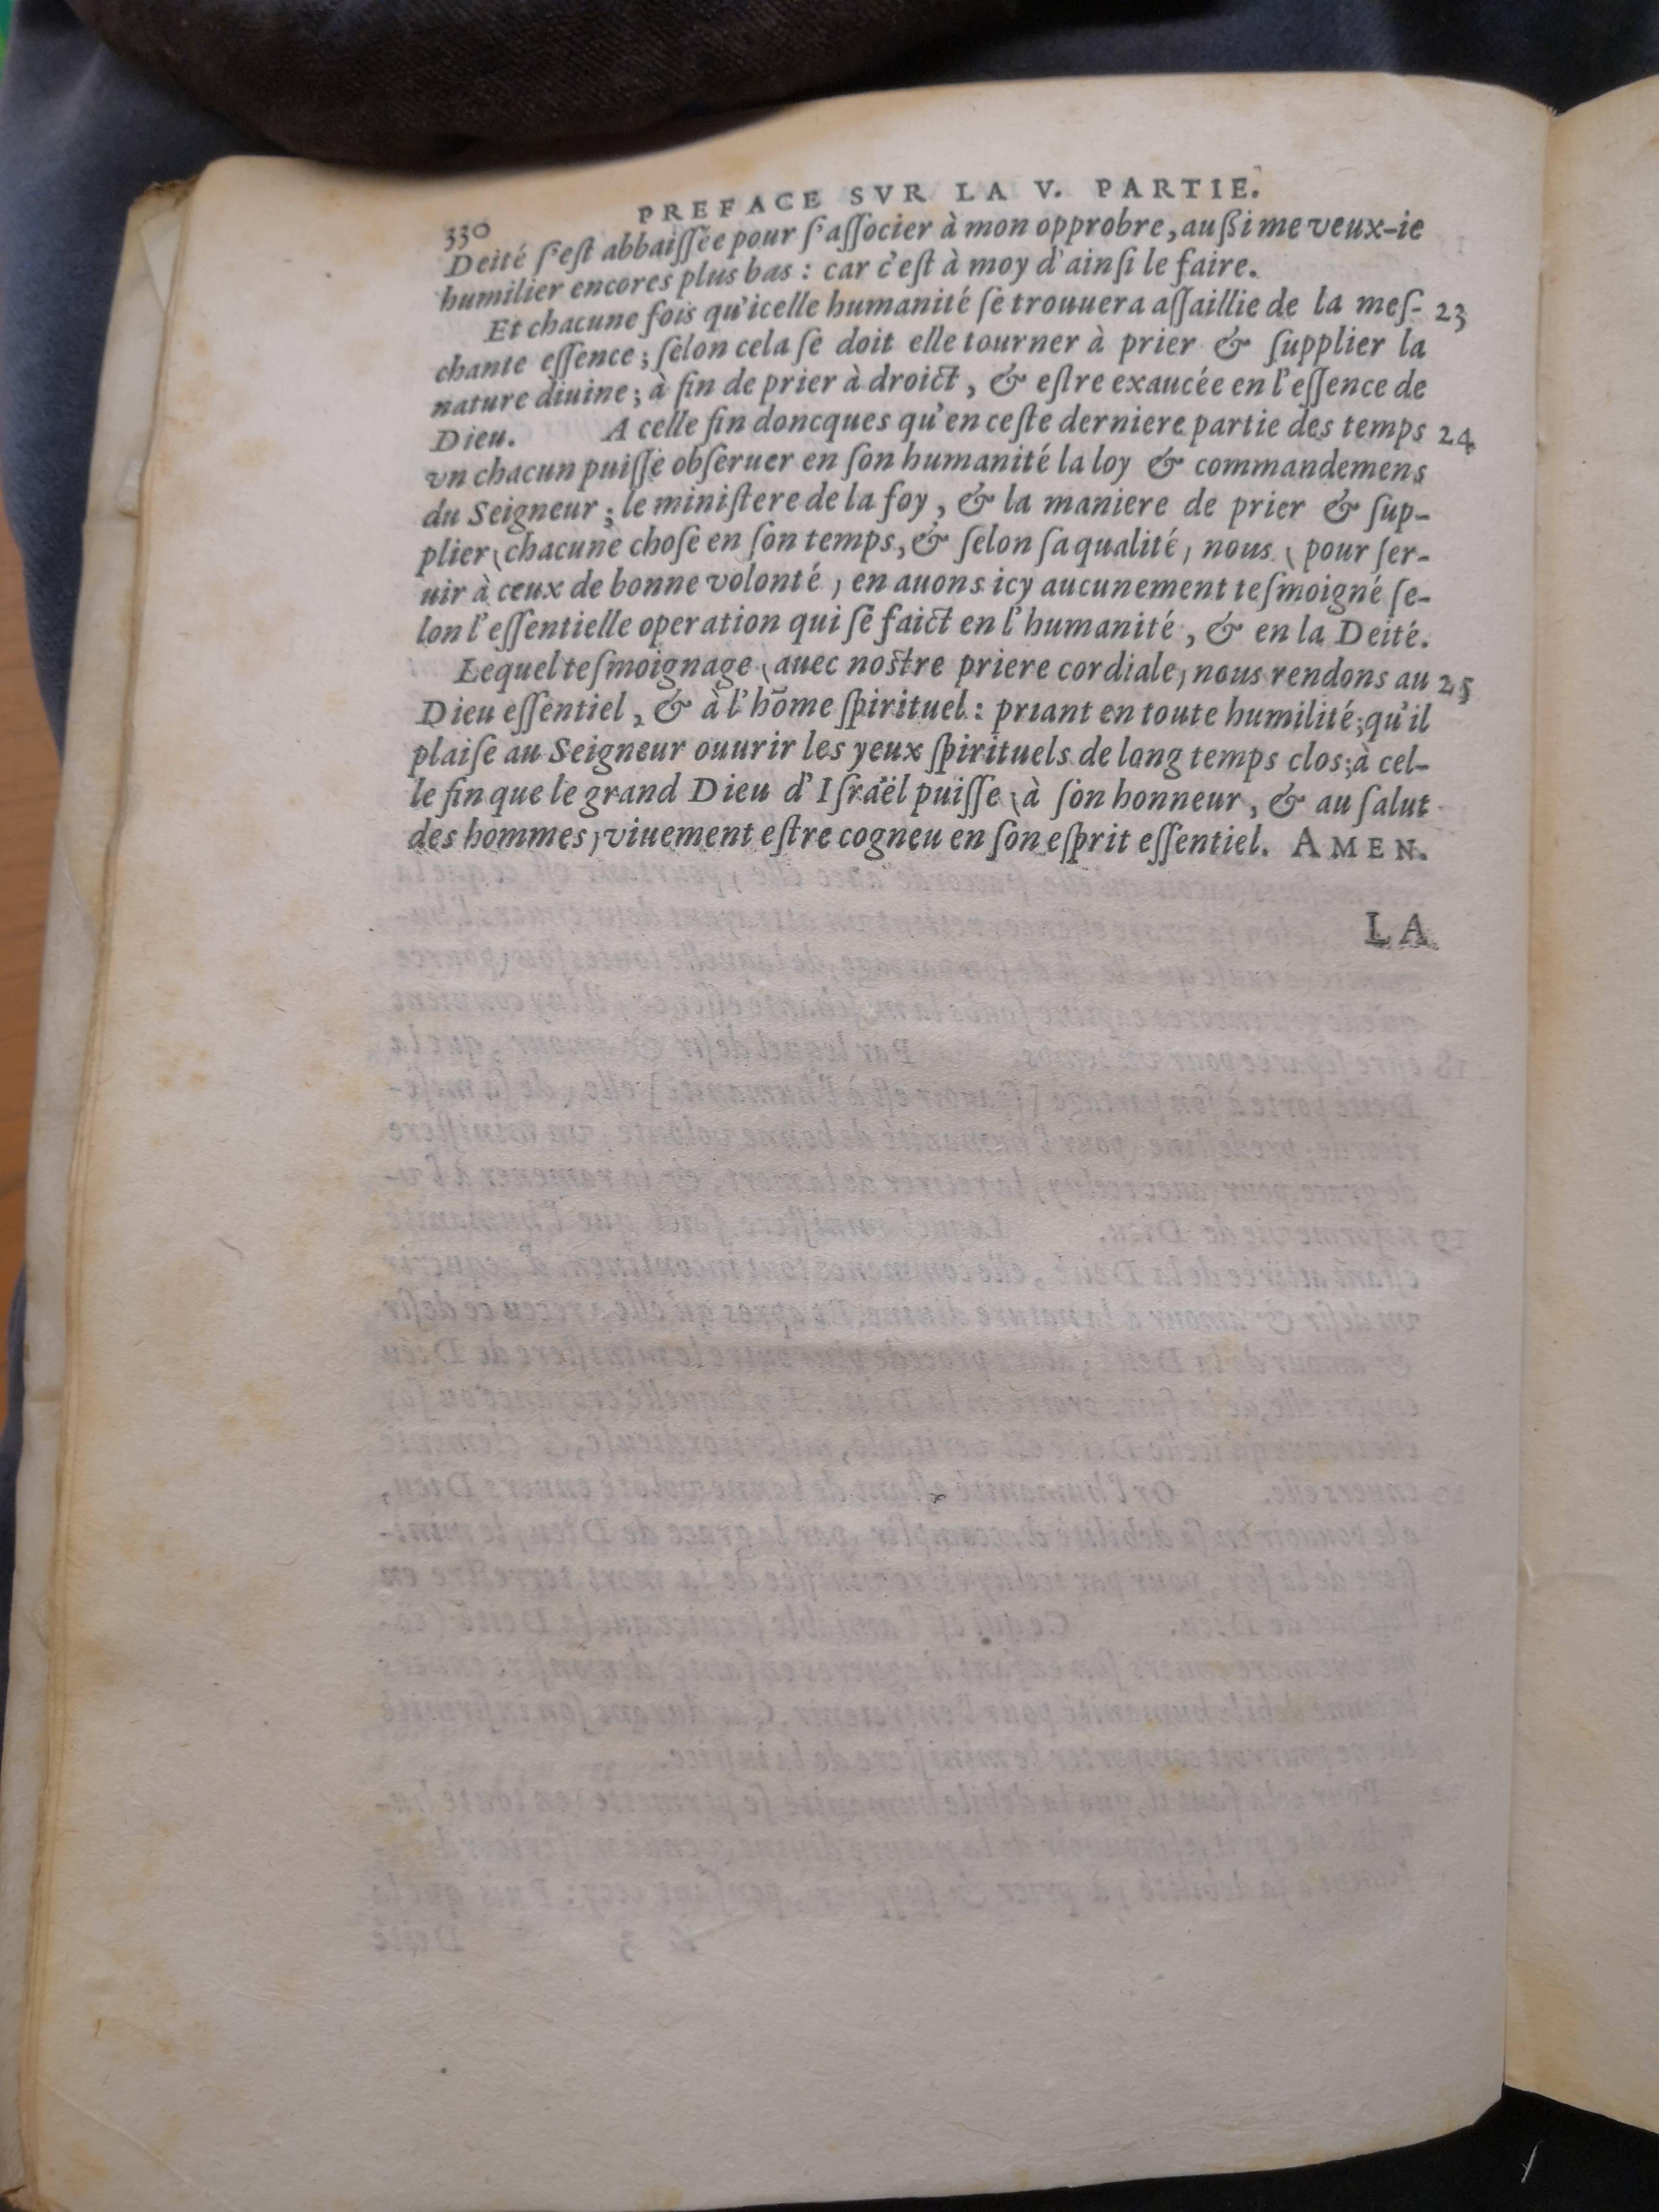 330 PREFACE SVR LA V. PARTIE.
Deité ſ'eſt abbaiſſée pour ſ'aſſocier à mon opprobre, außi me veux-ie
humilier encores plus bas : car c'eſt à moy d'ainſi le faire.
Et chacune fois qu'icelle humanité ſe trouuera aſſaillie de la meſ- 23
chante eſſence ; ſelon cela ſe doit elle tourner à prier & ſupplier la
nature diuine ; à fin de prier à droict, & eſtre exaucée en l'eſſence de
Dieu. A celle fin doncques qu'en ceſte derniere partie des temps 24
vn chacun puiſſe obſeruer en ſon humanité la loy & commandemens
du Seigneur ; le miniſtere de la foy, & la maniere de prier & ſup-
plier ( chacune choſe en ſon temps, & ſelon ſa qualité ) nous ( pour ſer-
uir à ceux de bonne volonté ) en auons icy aucunement teſmoigné ſe-
lon l'eſſentielle operation qui ſe faict en l'humanité, & en la Deité.
Lequel teſmoignage ( auec noſtre priere cordiale ) nous rendons au 25
Dieu eſſentiel, & à l'hõme ſpirituel : priant en toute humilité ; qu'il
plaiſe au Seigneur ouurir les yeux ſpirituels de long temps clos ; à cel-
le fin que le grand Dieu d'Iſraël puiſſe ( à ſon honneur, & au ſalut
des hommes ) viuement eſtre cogneu en ſon eſprit eſſentiel. AMEN.
LA